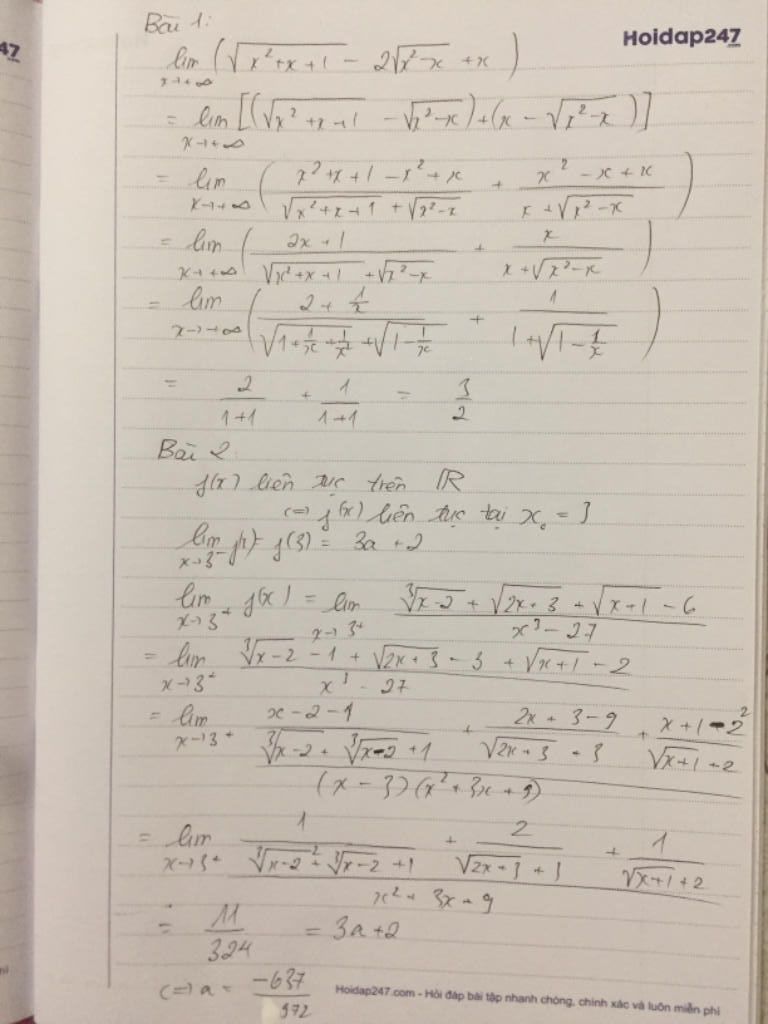 Bài 1:
Hoidap247
47
lim x→+∞ (√(x²+x+1) - 2√(x²-x) +x)
= lim x→+∞ [(√(x²+x+1) - √(x²-x))+(x - √(x²-x))]
= lim x→+∞ ((x²+x+1-x²+x)/(√(x²+x+1) + √(x²-x)) + (x²-x+x)/(x+√(x²-x)))
= lim x→+∞ ((2x+1)/(√(x²+x+1) +√(x²-x)) + x/(x+√(x²-x)))
= lim x→+∞ ((2+1/x)/(√(1+1/x+1/x²)+√(1-1/x)) + 1/(1+√(1-1/x)))
= 2/(1+1) + 1/(1+1) = 3/2
Bài 2:
f(x) liên tục trên ℝ
<=> f(x) liên tục tại x₀ = 3
lim x→3⁻ f(x)= f(3) = 3a+2
lim x→3⁺ f(x) = lim x→3⁺ (∛(x-2) + √(2x+3) + √(x+1) - 6)/(x³-27)
= lim x→3⁺ (∛(x-2) -1 + √(2x+3) -3 + √(x+1) -2)/(x³-27)
= lim x→3⁺ ((x-2-1)/(∛(x-2) + ∛(x-2) +1) + (2x+3-9)/(√(2x+3) +3) + (x+1-2²)/(√(x+1)+2))/((x-3)(x²+3x+9))
= lim x→3⁺ (1/(∛(x-2)²+∛(x-2)+1) + 2/(√(2x+3)+3) + 1/(√(x+1)+2))/(x²+3x+9)
= 11/324 = 3a+2
<=> a = -637/972
Hoidap247.com - Hỏi đáp bài tập nhanh chóng, chính xác và luôn miễn phí